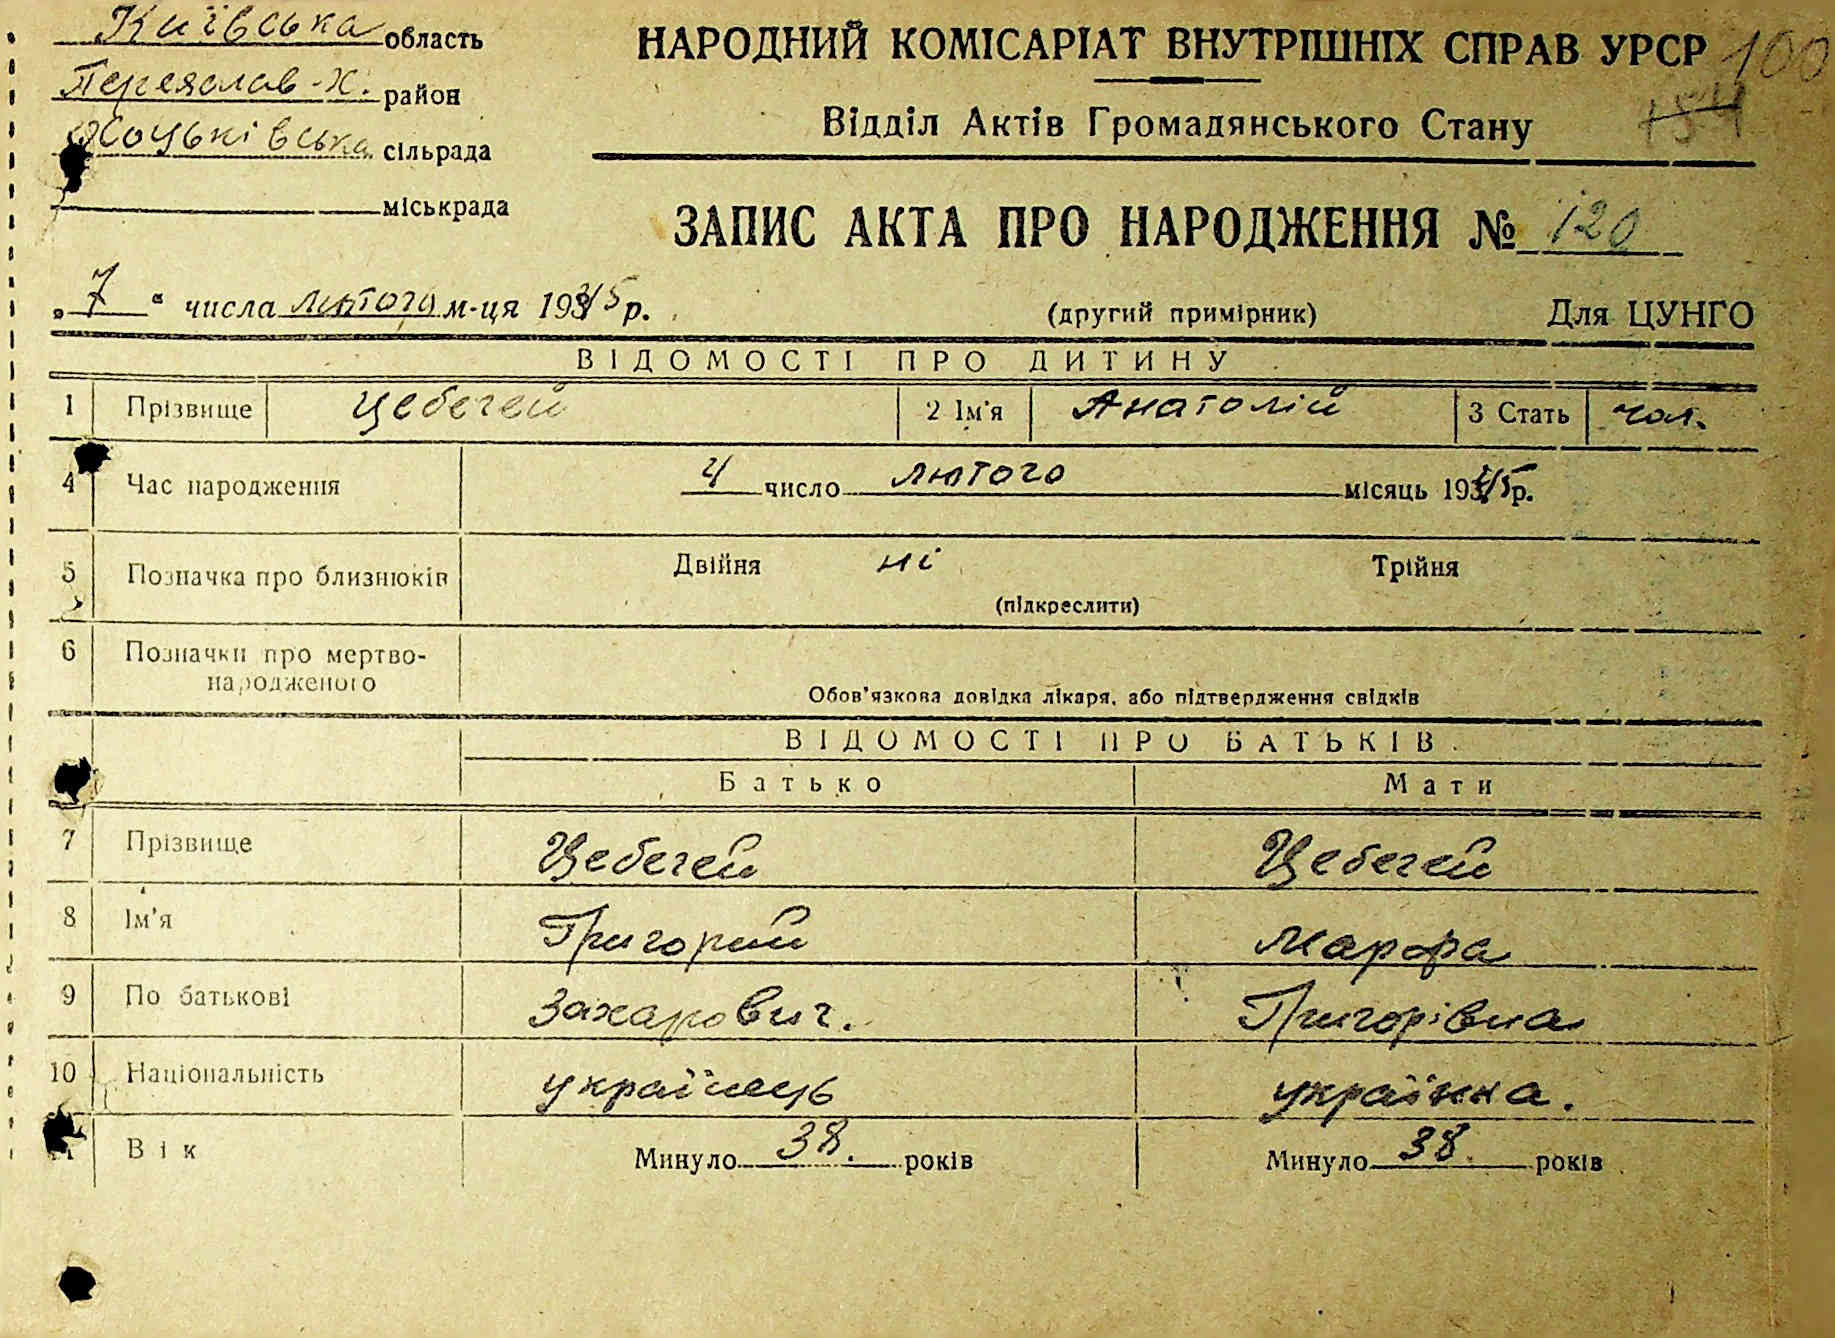 Київська область
Переяслав-Х. район
Хоцьківська сільрада
міськрада
НАРОДНИЙ КОМІСАРІАТ ВНУТРІШНІХ СПРАВ УРСР 100
Відділ Актів Громадянського Стану
ЗАПИС АКТА ПРО НАРОДЖЕННЯ № 120
„7“ числа лютого м-ця 1945 р. (другий примірник) Для ЦУНГО
ВІДОМОСТІ ПРО ДИТИНУ
1 Прізвище Цебегей 2 Ім'я Анатолій 3 Стать чол.
4 Час народження 4 число лютого місяць 1945 р.
5 Позначка про близнюків Двійня ні Трійня
(підкреслити)
6 Позначки про мертво-
народженого
Обов'язкова довідка лікаря, або підтвердження свідків
ВІДОМОСТІ ПРО БАТЬКІВ
Батько Мати
7 Прізвище Цебегей Цебегей
8 Ім'я Григорий Марфа
9 По батькові Захарович. Григорівна
10 Національність українець українка.
Вік Минуло 38. років Минуло 38. років